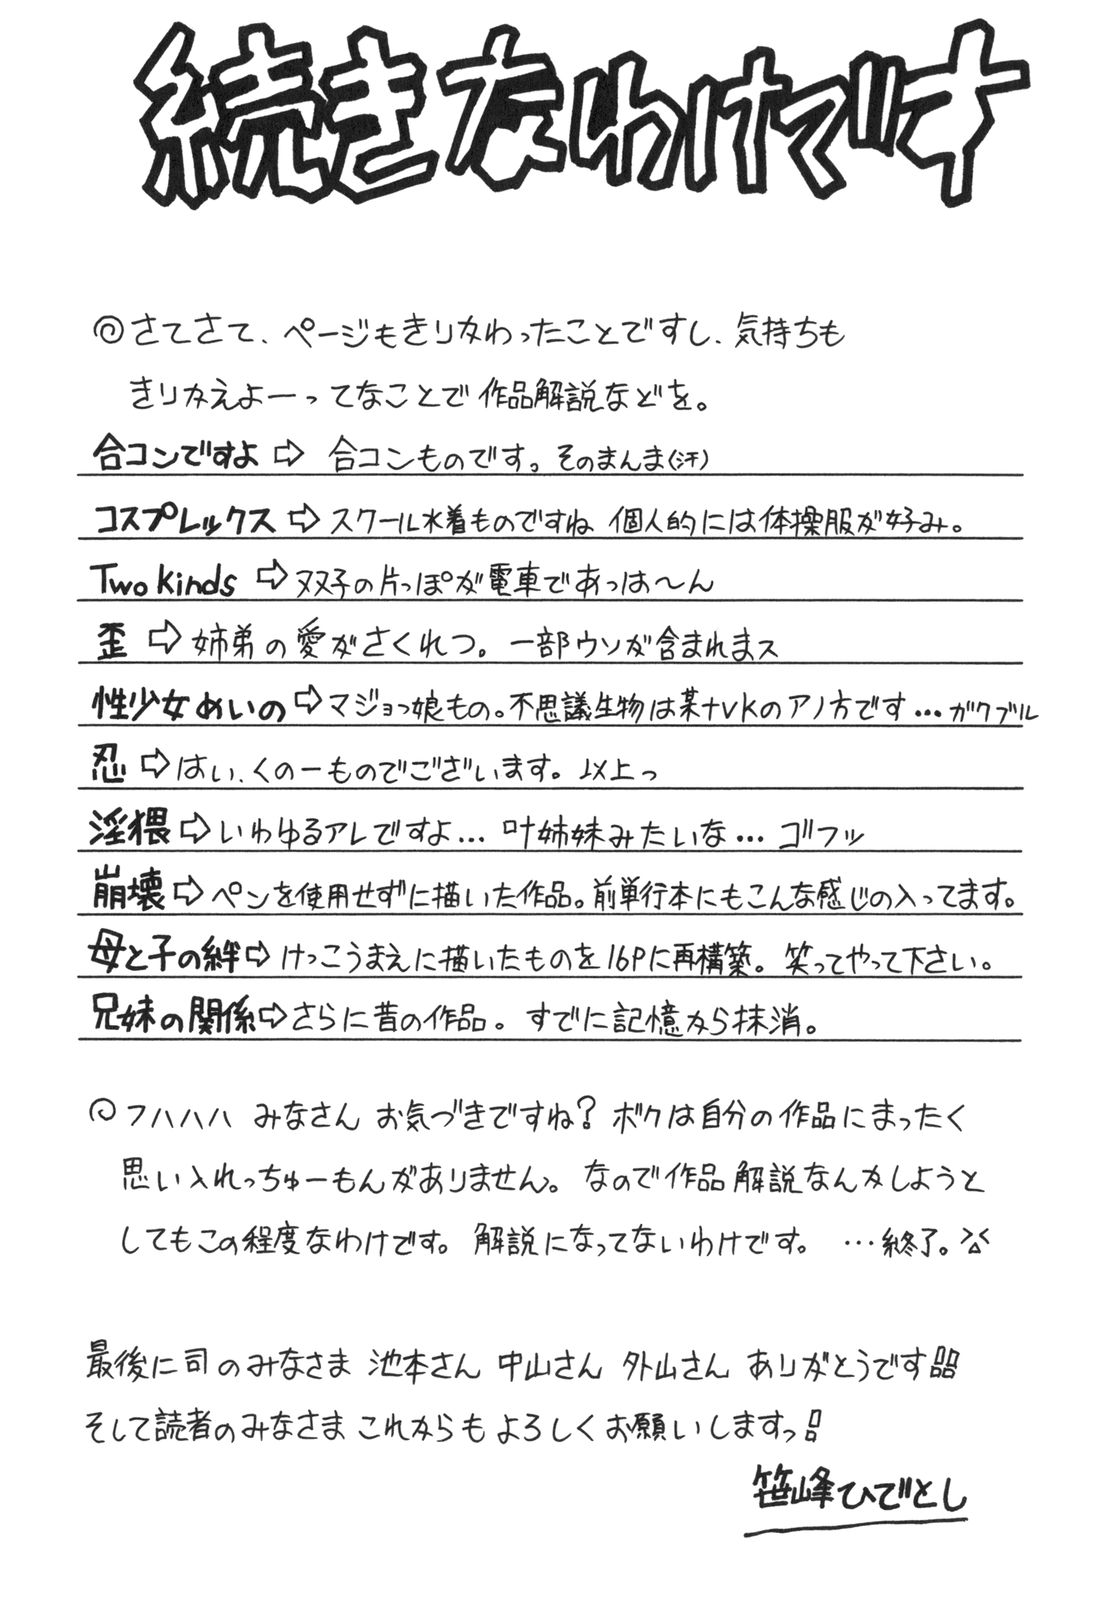 続きなわけです
◎さてさて、ページもきりかわったことですし、気持ちも
きりかえよーってなことで作品解説などを。
合コンですよ⇨合コンものです。そのまんま(汗)
コスプレックス⇨スクール水着ものですね 個人的には体操服が好み。
Two Kinds⇨双子の片っぽが電車であっは〜ん
歪⇨姉弟の愛がさくれつ。一部ウソが含まれまス
性少女めいの⇨マジョっ娘もの。不思議生物は某十VKのアノ方です…ガクブル
忍⇨はい、くの一ものでございます。以上っ
淫猥⇨いわゆるアレですよ… 叶姉妹みたいな… ゴフッ
崩壊⇨ペンを使用せずに描いた作品。前単行本にもこんな感じの入ってます。
母と子の絆⇨けっこうまえに描いたものを16Pに再構築。笑ってやって下さい。
兄妹の関係⇨さらに昔の作品。すでに記憶から抹消。
◎フハハハ みなさん お気づきですね? ボクは自分の作品にまったく
思い入れっちゅーもんがありません。なので作品解説なんかしようと
してもこの程度なわけです。解説になってないわけです。 …終了。
最後に司のみなさま 池本さん 中山さん 外山さん ありがとうです!!
そして読者のみなさま これからも よろしくお願いしますっ!
笹峰ひでとし